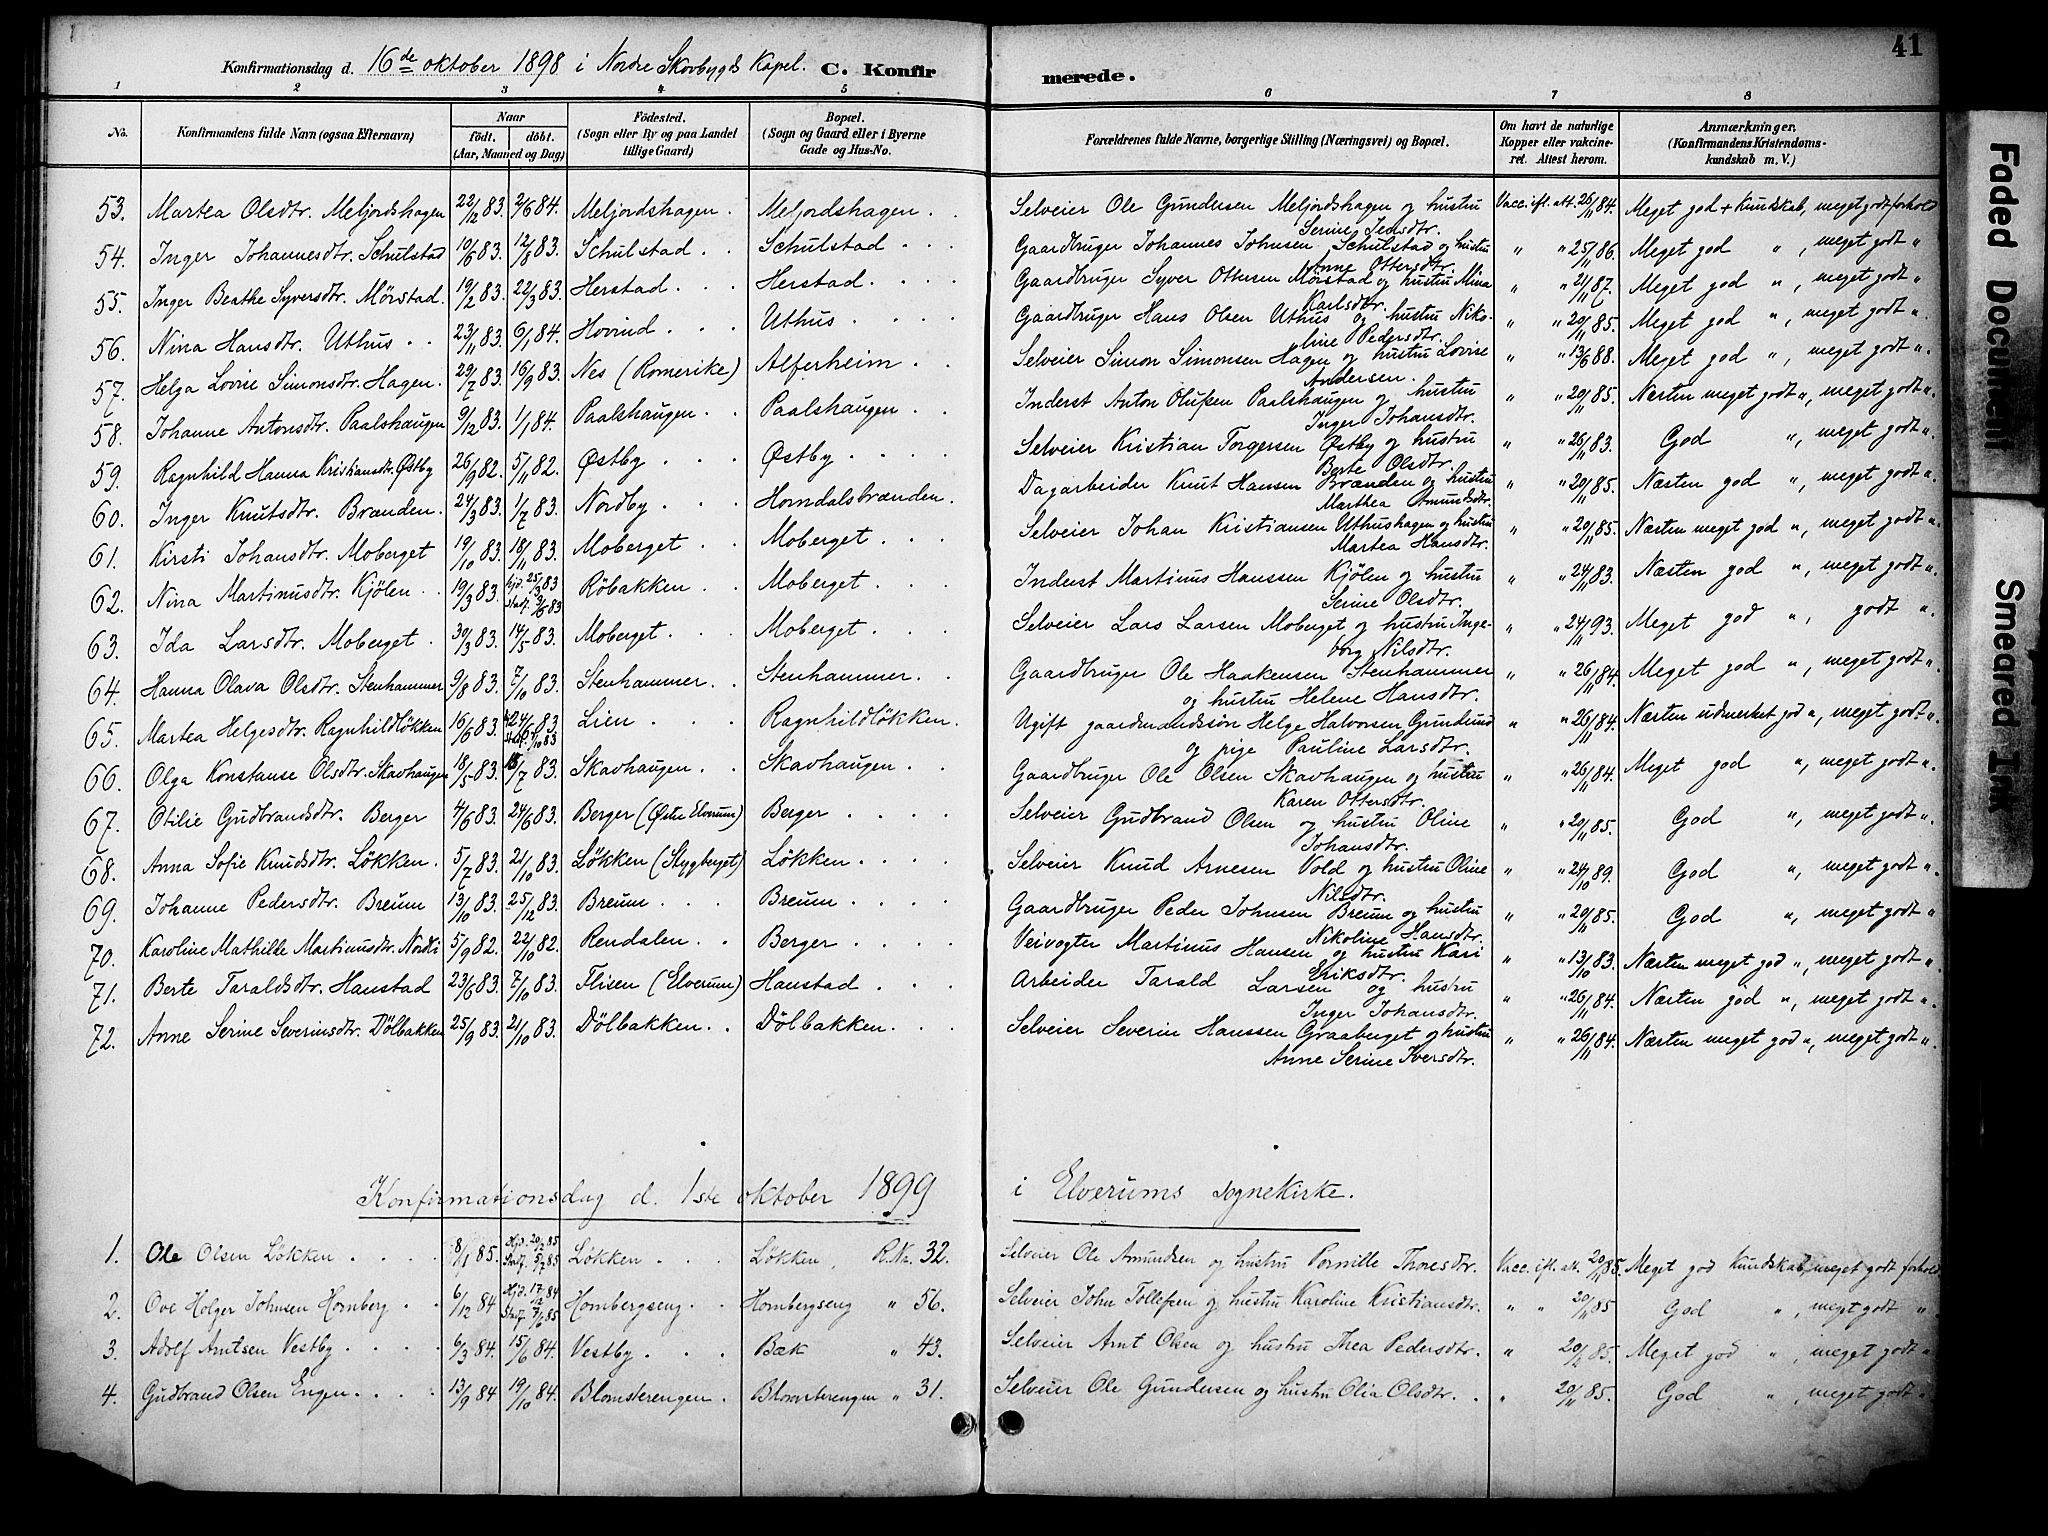 41
Konfirmationsdag d. 16de oktober 1898 i Nordre Skovbygds Kapel. C. Konfirmerede.
1 2 3 4 5 6 7 8
No. Konfirmandens fulde Navn (ogsaa Efternavn) Naar födt. döbt. (Aar, Maaned og Dag) Födested. (Sogn eller By og paa Landet tillige Gaard) Bopæl. (Sogn og Gaard eller i Byerne Gade og Hus-No. Forældrenes fulde Navne, borgerlige Stilling (Næringsvei) og Bopæl. Om havt de naturlige Kopper eller vakcineret. Attest herom. Anmærkninger. (Konfirmandens Kristendomskundskab m. V.)
53. Martea Olsdtr. Meljordshagen 22/12 83. 2/6 84. Meljordshagen. Meljordshagen. Selveier Ole Gundersen Meljordshagen og hustru Serine Jensdtr. Vacc. ifl. att. 26/11 84. Meget god + Kundskab, meget godt forhold
54. Inger Johannesdtr. Schulstad 10/6 83. 12/8 83. Schulstad Schulstad Gaardbruger Johannes Johnsen Schulstad og hustru Anne Ottersdtr. " " 25/11 86. Meget god ", meget godt "
55. Inger Beathe Syversdtr. Mörstad. 19/2 83. 22/3 83. Herstad Herstad Gaardbruger Syver Ottersen Mörstad og hustru Mina Karlsdtr. " " 21/11 87. Meget god ", meget godt "
56. Nina Hansdtr. Uthus 23/11 83. 6/1 84. Hovind Uthus Gaardbruger Hans Olsen Uthus og hustru Nikoline Pedersdtr. " " 20/11 85. Meget god ", meget godt ".
57. Helga Lovise Simonsdtr. Hagen. 29/7 83. 16/9 83. Nes (Romerike) Alferheim Selveier Simon Simonsen Hagen og hustru Lovise Andersen. " " 13/6 88. Meget god ", meget godt ".
58. Johanne Antonsdtr. Paalshaugen 9/12 83. 1/1 84. Paalshaugen Paalshaugen Inderst Anton Olufsen Paalshaugen og hustru Inger Johansdtr. " " 20/11 85. Næsten meget godt ", meget godt ".
59. Ragnhild Hanna Kristiansdtr. Østby 26/9 82. 5/11 82. Østby Østby Selveier Kristian Torgersen Østby og hustru Berte Olsdtr. " " 26/11 83. God ", meget godt ".
60. Inger Knutsdtr. Brænden. 24/3 83. 1/7 83. Nordby Horndalsbrænden. Dagarbeider Knut Hansen Brænden og hustru Marthea Amundsdtr. " " 20/11 85. Næsten god ", meget godt ".
61. Kirsti Johansdtr. Moberget 19/10 83. 18/11 83. Moberget Moberget Selveier Johan Kristiansen Uthushagen og hustru Martea Hansdtr. " " 20/11 85. Næsten meget god ", meget godt ".
62. Nina Martinusdtr. Kjölen 19/3 83. Hjd. 25/3 83 Stadf. 3/6 83 Röbakken Moberget Inderst Martinus Hanssen Kjölen og hustru Serine Olsdtr. " " 24/11 83. Næsten god ", meget godt ".
63. Ida Larsdtr. Moberget. 30/3 83. 14/5 83. Moberget. Moberget Selveier Lars Larsen Moberget og hustru Ingeborg Nilsdtr. " " 24/11 93. Meget god ", godt ".
64. Hanna Olava Olsdtr. Stenhammer 9/8 83. 7/10 83. Stenhammer Stenhammer Gaardbruger Ole Haakensen Stenhammer og hustru Helene Hansdtr. " " 26/11 84. Meget god ", meget godt ".
65. Martea Helgesdtr. Ragnhildløkken 16/6 83. 24/6 83 Lien Ragnhildløkken. Ugift gaardmandssøn Helge Halvorsen Grundsund og pige Pauline Larsdtr. " " 26/11 84. Næsten udmerket god ", meget godt ".
66. Olga Konstanse Olsdtr. Skavhaugen 18/5 83. /7 83. Skavhaugen Skavhaugen Gaardbruger Ole Olsen Skavhaugen og hustru Karen Ottersdtr. " " 26/11 84. Meget god ", meget godt ".
67. Otilie Gudbrandsdtr. Berger 4/6 83. 24/6 83. Berger (Østre Elverum) Berger Selveier Gudbrand Olsen og hustru Oline Johansdtr. " " 20/11 85. God ", meget godt ".
68. Anna Sofie Knudsdtr. Løkken. 5/7 83. 21/10 83. Løkken (Stygberget) Løkken Selveier Knud Arnesen Vold og hustru Oline Nilsdtr. " " 24/10 89. God ", meget godt ".
69. Johanne Pedersdtr. Breum 13/10 83. 25/12 83. Breum Breum Gaardbruger Peder Johnsen Breum og hustru Nikoline Hansdtr. " " 20/11 85. God ", meget godt ".
70. Karoline Mathilde Martinusdtr. Nordli 5/9 82. 22/10 82. Rendalen Berger Veivogter Martinus Hansen og hustru Kari Eriksdtr. " " 13/10 83. Næsten meget god ", meget godt ".
71. Berte Taraldsdtr. Hanstad 23/6 83. 7/10 83. Flisen (Elverum) Hanstad Arbeider Tarald Larsen og hustru Inger Johansdtr. " " 26/11 84. Næsten god ", meget godt ".
72. Anne Serine Severinsdtr. Dölbakken 25/9 83. 21/10 83. Dölbakken Dölbakken Selveier Severin Hanssen Graaberget og hustru Anne Serine Iversdtr. " " 26/11 84. Næsten meget god ", meget godt ".
Konfirmationsdag d. 1ste oktober 1899 i Elverums Sognekirke.
1. Ole Olsen Løkken 8/1 85. Hjd. 20/2 85 Stadf. 5/7 85 Løkken Løkken, R.No. 32. Selveier Ole Amundsen og hustru Pernille Thoresdtr. Vacc. ifl. att. 20/11 85. Meget god Kundskab, meget godt forhold
2. Ove Holger Johnsen Hornberg 6/12 84 Hjd. 17/12 84 Stadf. 7/6 85 Hornbergseng Hornbergseng " 56. Selveier John Tollefsen og hustru Karoline Kristiansdtr. " " 20/11 85 God ", meget godt ".
3. Adolf Arntsen Vestby 6/3 84. 15/6 84. Vestby Bæk " 43. Selveier Arnt Olsen og hustru Thea Pedersdtr. " 20/2 85. Meget god ", meget godt "
4. Gudbrand Olsen Engen 13/9 84 19/10 84. Blomsterengen Blomsterengen " 31. Selveier Ole Gundersen og hustru Olia Olsdtr. " 20/11 85. God ", meget godt "
Faded Document
Smeared Ink